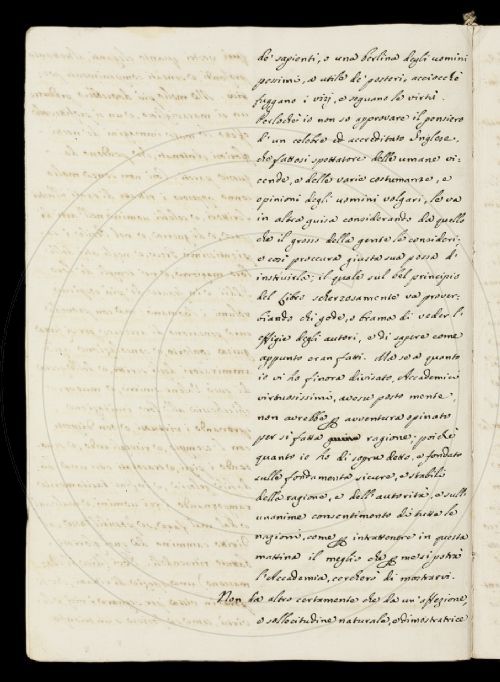 de' sapienti, o una berlina degli uomini
pessimi, a utile de' posteri, acciocchè
fuggano i vizj, e seguano le virtù.
Perlochè io non so approvare il pensiero
d'un celebre ed accreditato Inglese,
che fattosi spettatore delle umane vi-
cende, e delle varie costumanze, e
opinioni degli uomini volgari, le va
in altra guisa considerando da quello
che il grosso della gente le consideri;
e così proccura giusta sua possa di
instruirla; il quale sul bel principio
del libro scherzosamente va prover-
biando chi gode, o brama di veder l'
effigie degli autori, e di sapere come
appunto eran fatti. Ma se a quanto
io vi ho finora divisato, Accademici
virtuosissimi, avesse posto mente,
non avrebbe p avventura opinato
per sì fatta ragione; poichè
quanto io ho di sopra detto, è fondato
sulle fondamenta sicure, e stabili
della ragione, e dell'autorità, e sull'
unanime consentimento di tutte le
nazioni, come p intrattenere in questa
mattina il meglio che p me si potrà
l'Accademia, cercherò di mostrarvi.
Non da altro certamente che da un'affezione,
e sollecitudine naturale, e dimostratrice